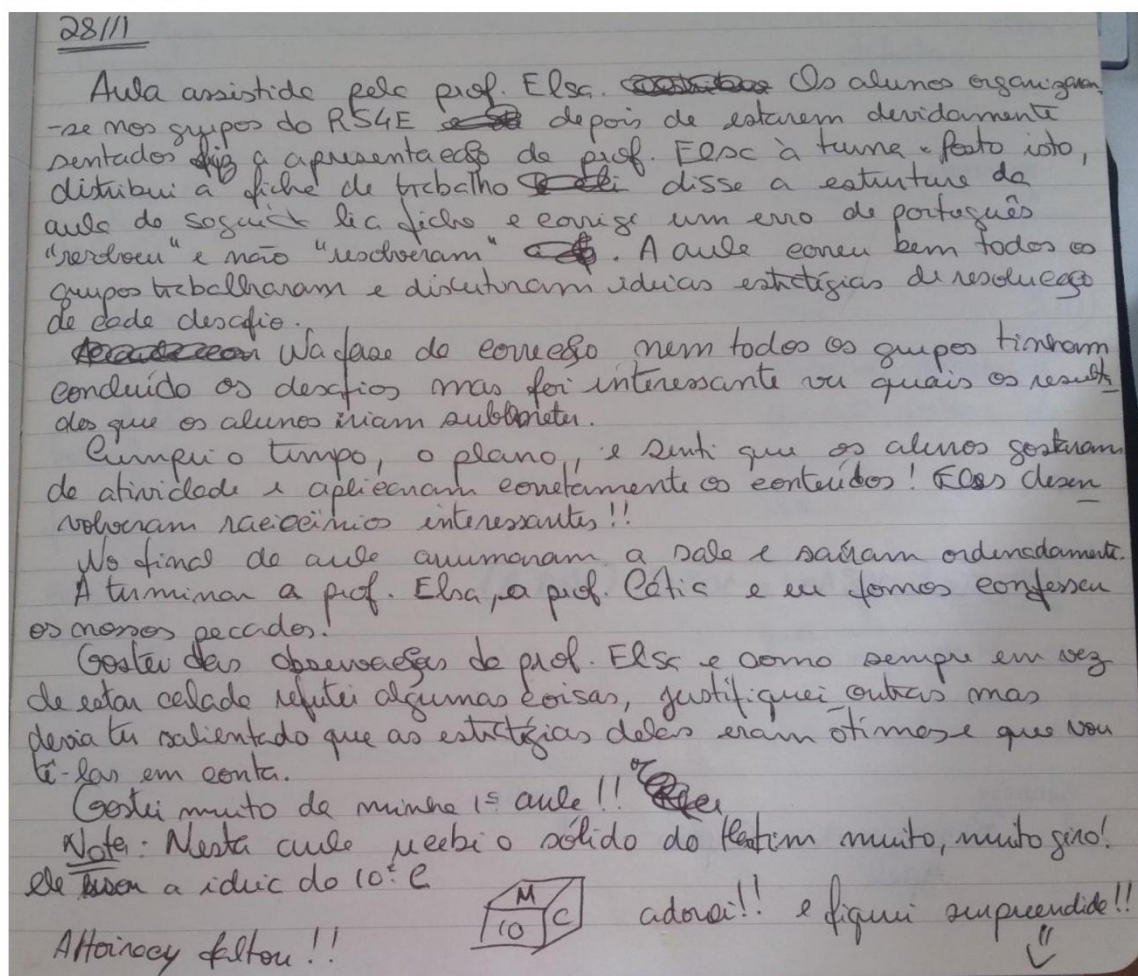 28/11
Aula assistida pela prof. Elsa. Os alunos organizaram
-se nos grupos do RS4E depois de estarem devidamente
sentados fiz a apresentação da prof. Elsa à turma. Posto isto,
distribui a ficha de trabalho disse a estrutura da
aula de seguida lia ficha e corrigi um erro de português
"resolveu" e não "resolveram". A aula correu bem todos os
grupos trabalharam e discutiram ideias estratégias de resolução
de cada desafio.
Na fase de correção nem todos os grupos tinham
concluído os desafios mas foi interessante ver quais os resulta
dos que os alunos iriam submeter.
Cumpri o tempo, o plano, e senti que os alunos gostaram
da atividade e aplicaram corretamente os conteúdos! Eles desen
volveram raciocínios interessantes!!
No final da aula arrumaram a sala e saíram ordenadamente.
A terminar a prof. Elsa, a prof. Cátia e eu fomos confessar
os nossos pecados!
Gostei das observações da prof. Elsa e como sempre em vez
de estar calada refutei algumas coisas, justifiquei outras mas
devia ter salientado que as estratégias delas eram ótimas e que vou
tê-las em conta.
Gostei muito da minha 1ª aula!!
Nota: Nesta aula recebi o sólido do muito, muito giro!
ele a ideia do 10º C
M
10 C
adorei!! e fiquei surpreendida!!
faltou!!